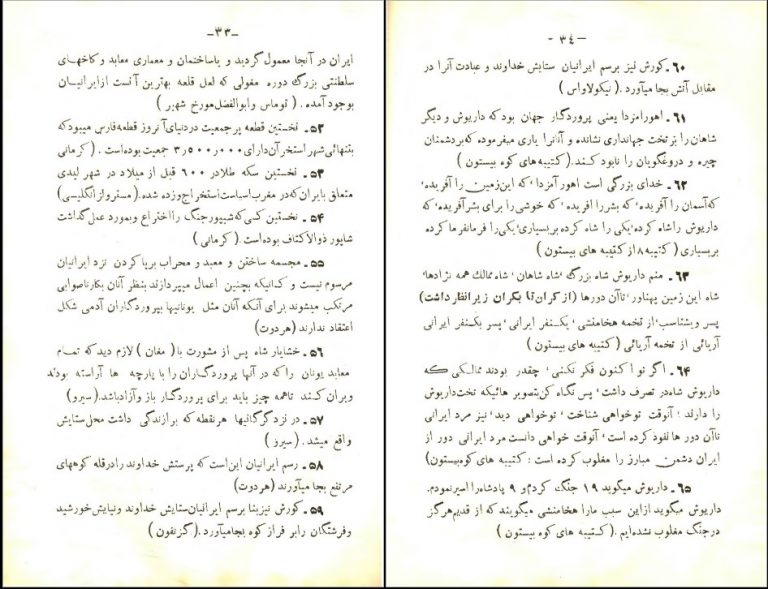 –۳۳–
ایران در آنجا معمول گردید و یاساختمان و معماری معابد و کاخهای
سلطنتی بزرگ دوره مغولی که لعل قلعه بهترین آنست از ایرانیان
بوجود آمده . ( توماس و ابوالفضل مورخ شهیر )
۵۲ـ نخستین قطعه پرجمعیت در دنیای آنروز قطعه فارس میبود که
بتنهائی شهر استخر آن دارای ۳٫۵۰۰٫۰۰۰ جمعیت بوده است . ( کرمانی )
۵۳ـ نخستین سکه طلا در ۶۰۰ قبل از میلاد در شهر لیدی
متعلق بایران که در مغرب اسیاست استخراج وزده شده. (مسترواز انگلیسی)
۵۴ـ نخستین کسی که شیپور جنگ را اختراع و بمورد عمل گذاشت
شاپور ذوالاکتاف بوده است . ( کرمانی )
۵۵ـ مجسمه ساختن و معبد و محراب برپا کردن نزد ایرانیان
مرسوم نیست و کسانیکه بچنین اعمال میپردازند بنظر آنان بکار ناصوابی
مرتکب میشوند برای آنکه آنان مثل یونانیها بپروردگاران آدمی شکل
اعتقاد ندارند (هردوت)
۵۶ـ خشایار شاه پس از مشورت با ( مغان ) لازم دید که تمام
معابد یونان را که در آنها پروردگاران را با پارچه ها آراسته بودند
ویران کنند تا همه چیز باید برای پروردگار باز و آزاد باشد. (سیرو)
۵۷ـ در نزد گرگانیها هر نقطه که برازندگی داشت محل ستایش
واقع میشد . ( سیرز )
۵۸ـ رسم ایرانیان این است که پرستش خداوند را در قله کوههای
مرتفع بجا میآورند (هردوت)
۵۹ـ کورش نیز بنا برسم ایرانیان ستایش خداوند و نیایش خورشید
و فرشتگان را بر فراز کوه بجا میآورد . (گزنفون )
–۳٤–
۶۰ـ کورش نیز برسم ایرانیان ستایش خداوند و عبادت آنرا در
مقابل آتش بجا میآورد . ( نیکولاواس )
۶۱ـ اهورامزدا یعنی پروردگار جهان بود که داریوش و دیگر
شاهان را بر تخت جهانداری نشانده و آنانرا یاری میفرموده که بردشمنان
چیره و دروغگویان را نابود کنند. (کتیبه های کوه بیستون )
۶۲ـ خدای بزرگی است اهورآمزدا، که این زمین را آفریده،
که آسمان را آفریده، که بشر را افریده، که خوشی را برای بشر آفریده، که
داریوش را شاه کرده، یکی را شاه کرده بر بسیاری، یکی را فرمانفرما کرده
بر بسیاری ( کتیبه ۸ از کتیبه های بیستون )
۶۳ـ منم داریوش شاه بزرگ، شاه شاهان، شاه ممالک همه نژادها،
شاه این زمین پهناور، تا آن دورها (از کران تا بکران زیر انظر داشت)
پسر ویشتاسب، از تخمه هخامنشی، یکنفر ایرانی، پسر یکنفر ایرانی
آریائی از تخمه آریائی ( کتیبه های بیستون )
۶۴ـ اگر تو اکنون فکر نکنی، چقدر بودند ممالکی که
داریوش شاه در تصرف داشت، پس نگاه کن بتصویر هائیکه تخت داریوش
را دارند ؛ آنوقت تو خواهی شناخت، تو خواهی دید، نیز مرد ایرانی
تا آن دور ها نفوذ کرده است، آنوقت خواهی دانست مرد ایرانی دور از
ایران دشمن مبارز را مغلوب کرده است : (کتیبه های کوه بیستون)
۶۵ـ داریوش میگوید ۱۹ جنگ کردم و ۹ پادشاه را اسیر نمودم.
داریوش میگوید از این سبب ما را هخامنشی میگویند که از قدیم هرگز
در جنگ مغلوب نشده ایم. ( کتیبه های کوه بیستون )